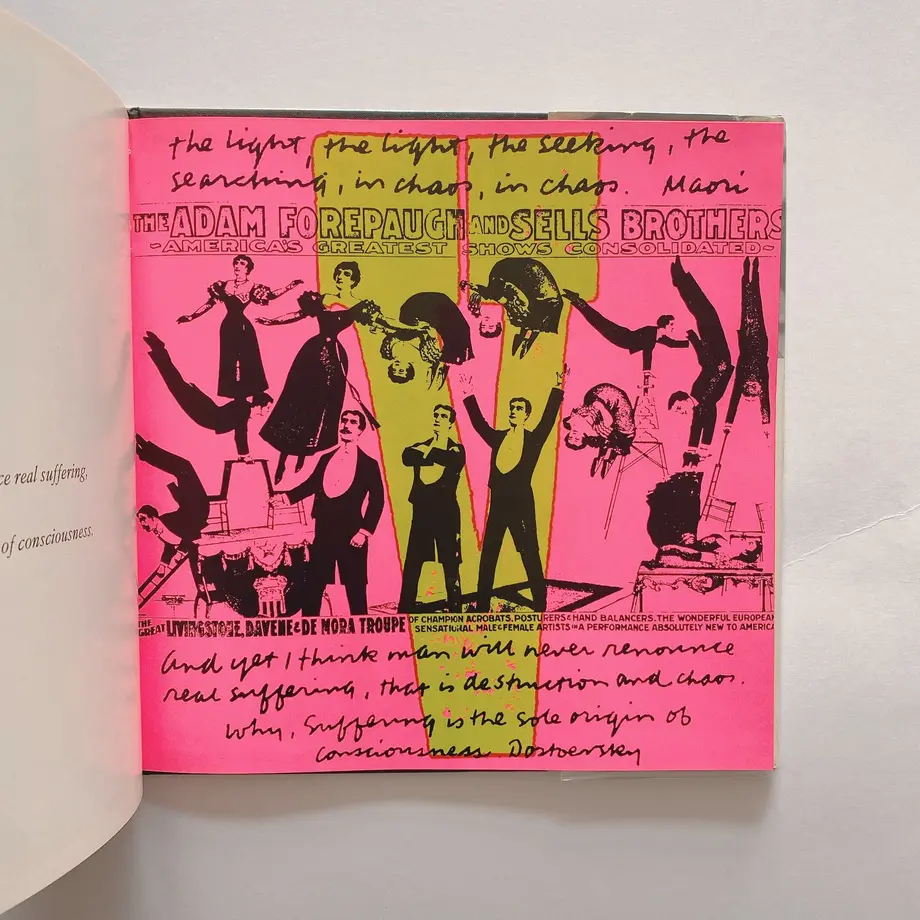 ce real suffering,
of consciousness.
the light, the light, the seeking, the
searching, in chaos, in chaos. Maori
THE ADAM FOREPAUGH AND SELLS BROTHERS
-AMERICA'S GREATEST SHOWS CONSOLIDATED-
V
THE GREAT LIVINGSTONE, DAVENE & DE MORA TROUPE OF CHAMPION ACROBATS, POSTURERS & HAND BALANCERS. THE WONDERFUL EUROPEAN
SENSATIONAL MALE & FEMALE ARTISTS IN A PERFORMANCE ABSOLUTELY NEW TO AMERICA
And yet I think man will never renounce
real suffering, that is destruction and chaos.
Why, suffering is the sole origin of
consciousness Dostoevsky